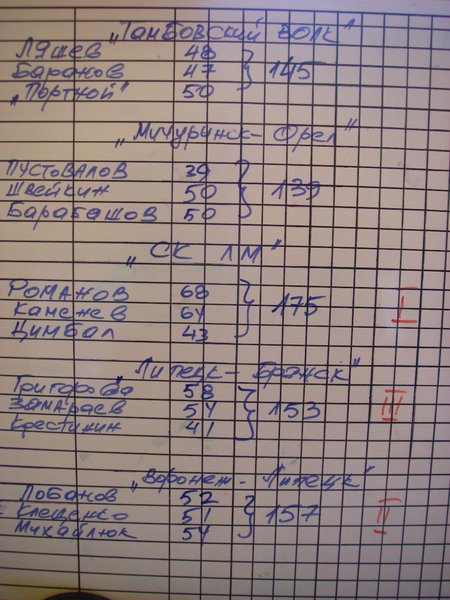 „Тамбовский волк"
Ляшев 48
Баранов 47 } 145
„Портной" 50
„Мичуринск - Орел"
Пустовалов 39
Швейкин 50 } 139
Барабашов 50
„СК ЛМ"
Романов 68
Каменев 64 } 175 I
Цимбал 43
„Липецк - Брянск"
Григорова 58
Замараев 54 } 153 III
Крестинин 41
„Воронеж - Липецк"
Лобанов 52
Клещенко 51 } 157 II
Михайлюк 54